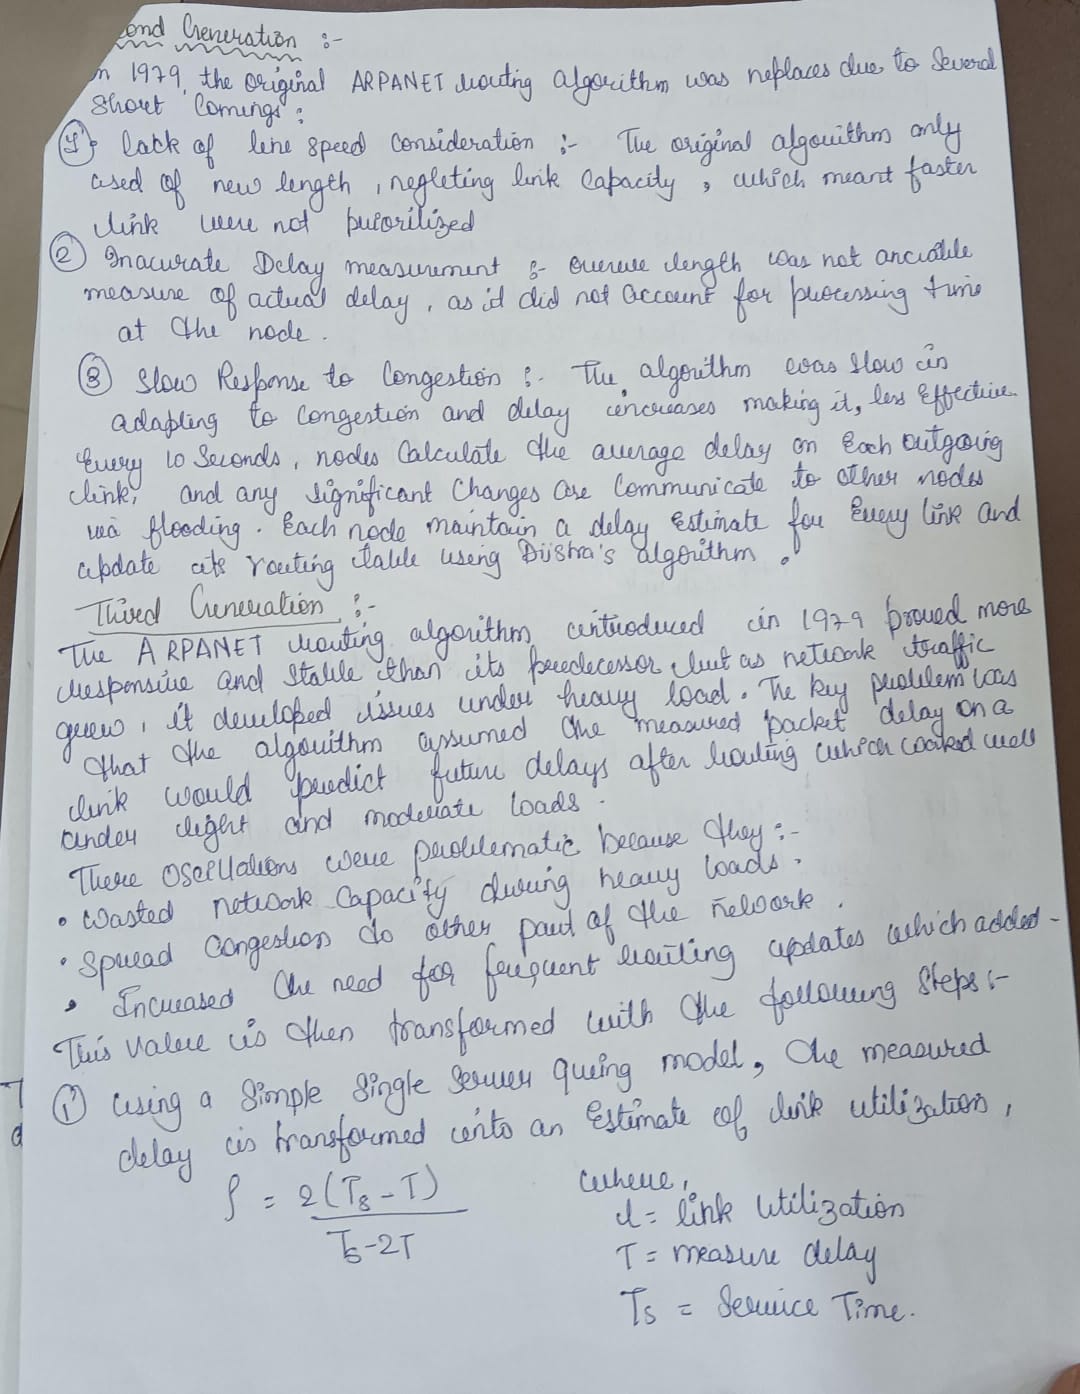 ond Generation :-
n 1979, the original ARPANET routing algorithm was neplaces due to Several
Short Comings :
1) lack of line speed Consideration :- The original algorithm only
used of new length, negleting link Capacity, which meant faster
link were not priorilized
2 Inacurate Delay measurement :- length was not
measure of actual delay, as it did not account for processing time
at the node.
3 Slow Response to Congestion :- The algorithm was slow in
adapting to Congestion and delay increases making it, less Effective.
Every 10 Seconds, nodes Calculate the average delay on Each outgoing
link, and any significant Changes are Communicate to other nodes
via flooding. Each node maintain a delay Estimate for Every link and
update its routing table using Dijstra's algorithm.
Third Generation :-
The ARPANET routing algorithm introduced in 1979 proved more
responsive and stable than its predecessor but as network traffic
grew, it developed issues under heavy load. The key problem was
that the algorithm assumed the measured packet delay on a
link would predict future delays after routing which worked well
under light and moderate loads.
There OScillations were problematic because they :-
• Wasted network Capacity during heavy loads.
• Spread Congestion to other part of the network.
• Increased the need for frequent routing updates which added -
This value is then transformed with the following Steps :-
1 Using a Simple Single Server queing model, the measured
delay is transformed into an Estimate of link utilization,
ρ = 2(Ts - T)
Ts - 2T
where,
= link utilization
T = measure delay
Ts = Service Time.